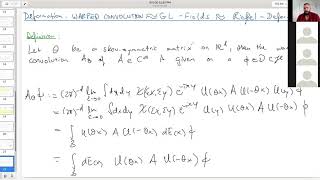 Deformation: WARPED CONVOLUTION FOR GL - Fields to Rieffel - Defor
Definition:
Let Θ be a skew-symmetric matrix on ℝᵈ, then the warped
convolution A_Θ of A ∈ C^∞ is given on a ϕ ∈ D
A_Θ ϕ := (2π)^{-d} lim_{ε→0} ∫ dx dy χ(εx, εy) e^{-ixy} U(Θx) A U(-Θx) U(y) ϕ
= (2π)^{-d} lim_{ε→0} ∫ dx dy χ(εx, εy) e^{-ixy} U(y) U(Θx) A U(-Θx) ϕ
= ∫ U(Θx) A U(-Θx) dE(x) ϕ
= ∫ dE(x) U(Θx) A U(-Θx) ϕ